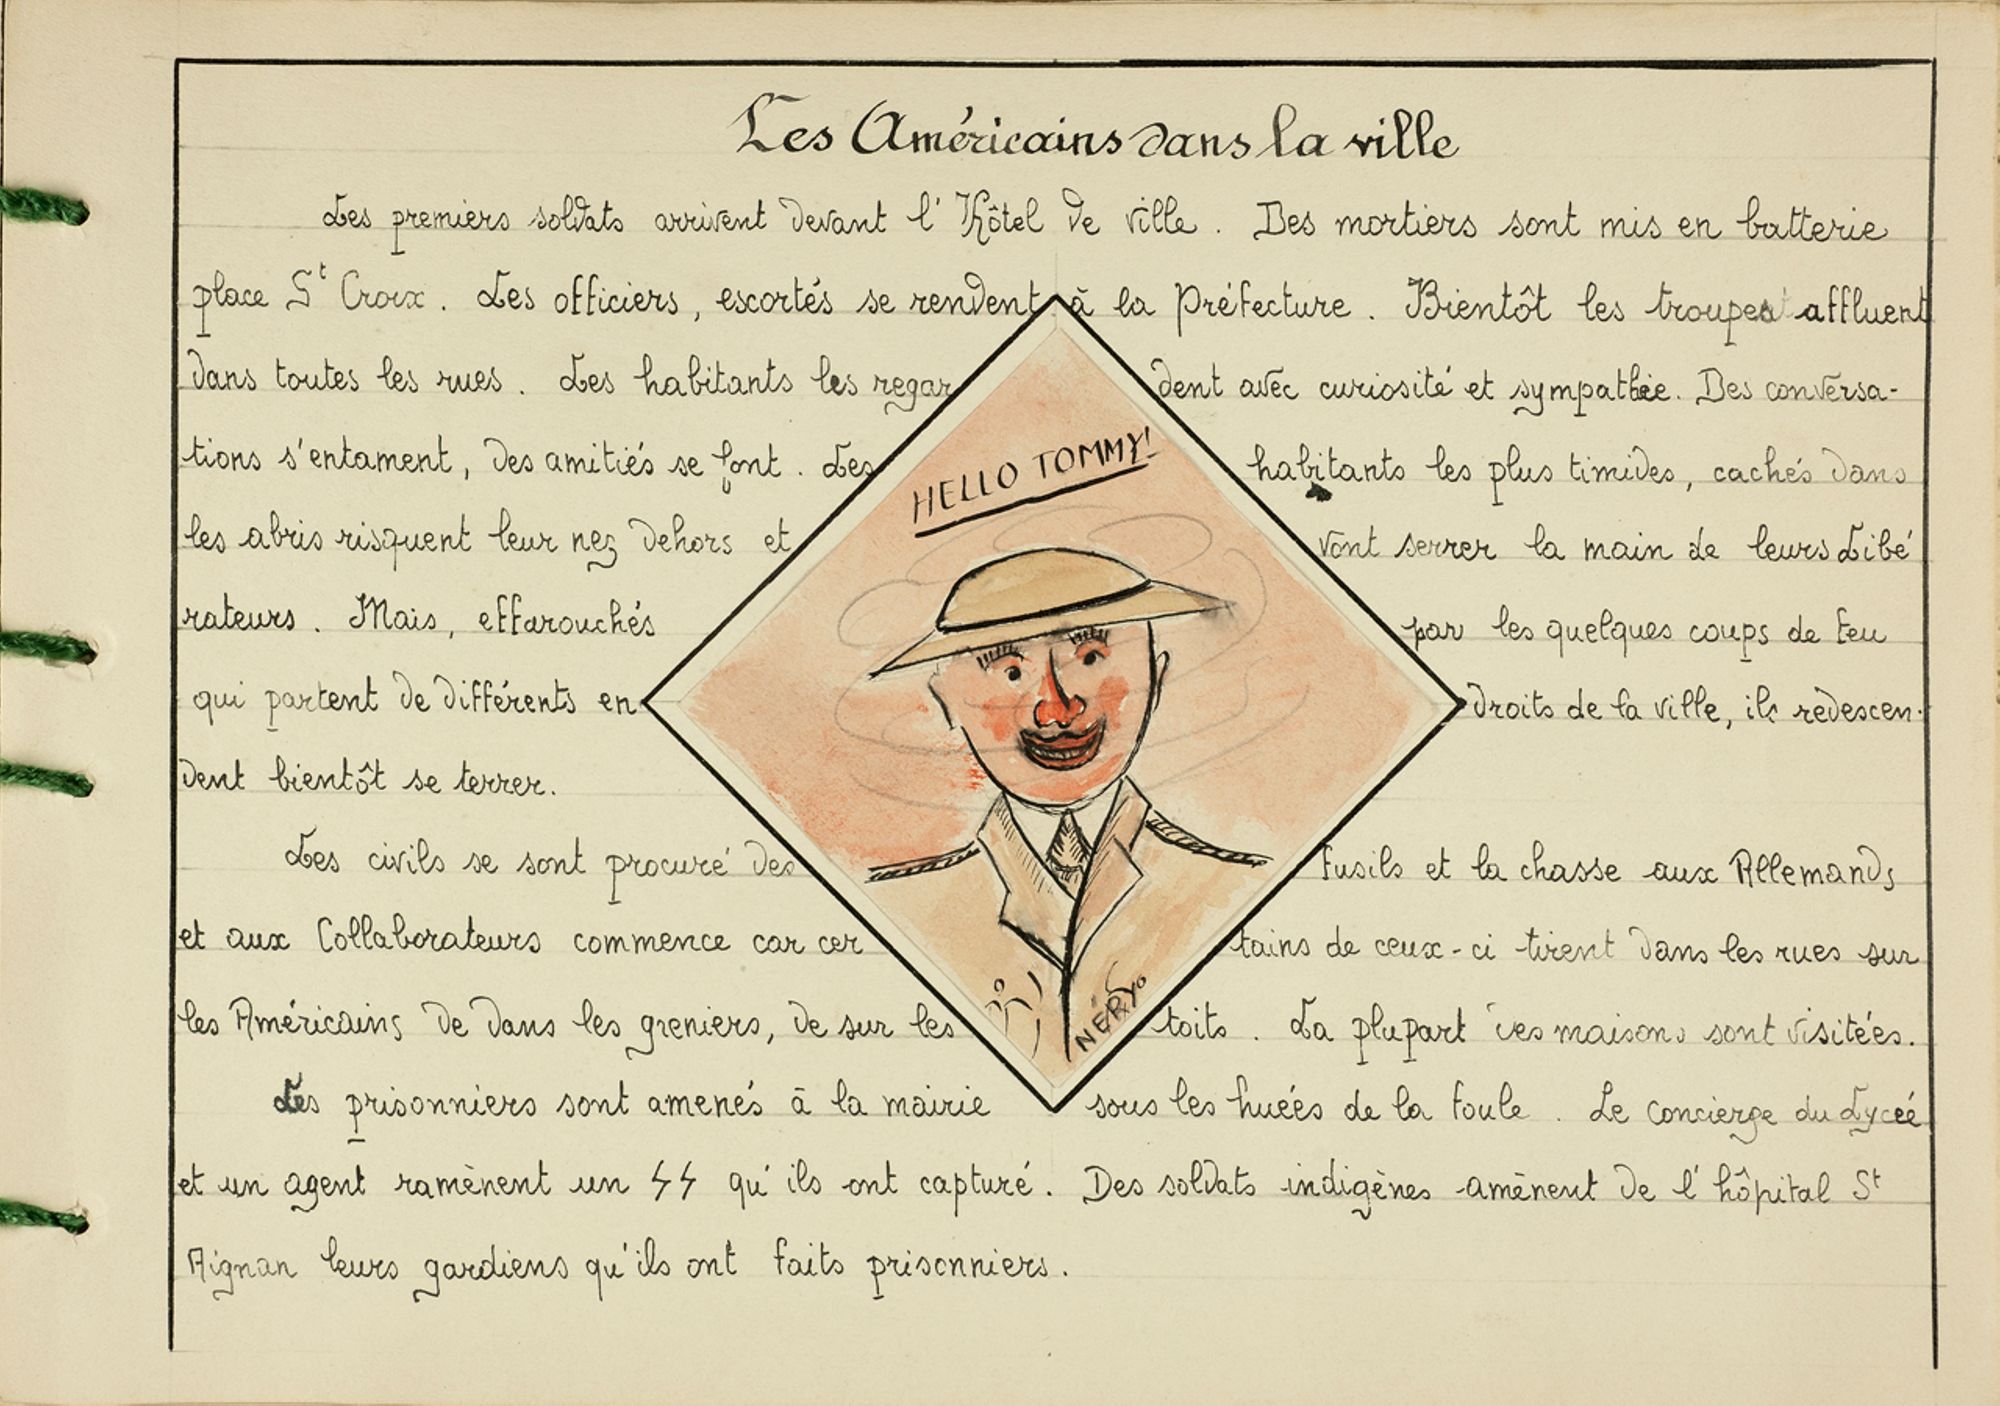 Les Américains dans la ville
Les premiers soldats arrivent devant l'Hôtel de ville. Des mortiers sont mis en batterie
place St Croix. Les officiers, escortés se rendent à la Préfecture. Bientôt les troupes affluent
dans toutes les rues. Les habitants les regar dent avec curiosité et sympathie. Des conversa-
tions s'entament, des amitiés se font. Les habitants les plus timides, cachés dans
les abris risquent leur nez dehors et vont serrer la main de leurs Libé
rateurs. Mais, effarouchés par les quelques coups de feu
qui partent de différents en droits de la ville, ils redescen-
dent bientôt se terrer.
Les civils se sont procuré des fusils et la chasse aux Allemands
et aux Collaborateurs commence car cer tains de ceux-ci tirent dans les rues sur
les Américains de dans les greniers, de sur les toits. La plupart des maisons sont visitées.
Les prisonniers sont amenés à la mairie sous les huées de la foule. Le concierge du Lycée
et un agent ramènent un SS qu'ils ont capturé. Des soldats indigènes amènent de l'hôpital St
Aignan leurs gardiens qu'ils ont faits prisonniers.
HELLO TOMMY!
NERY